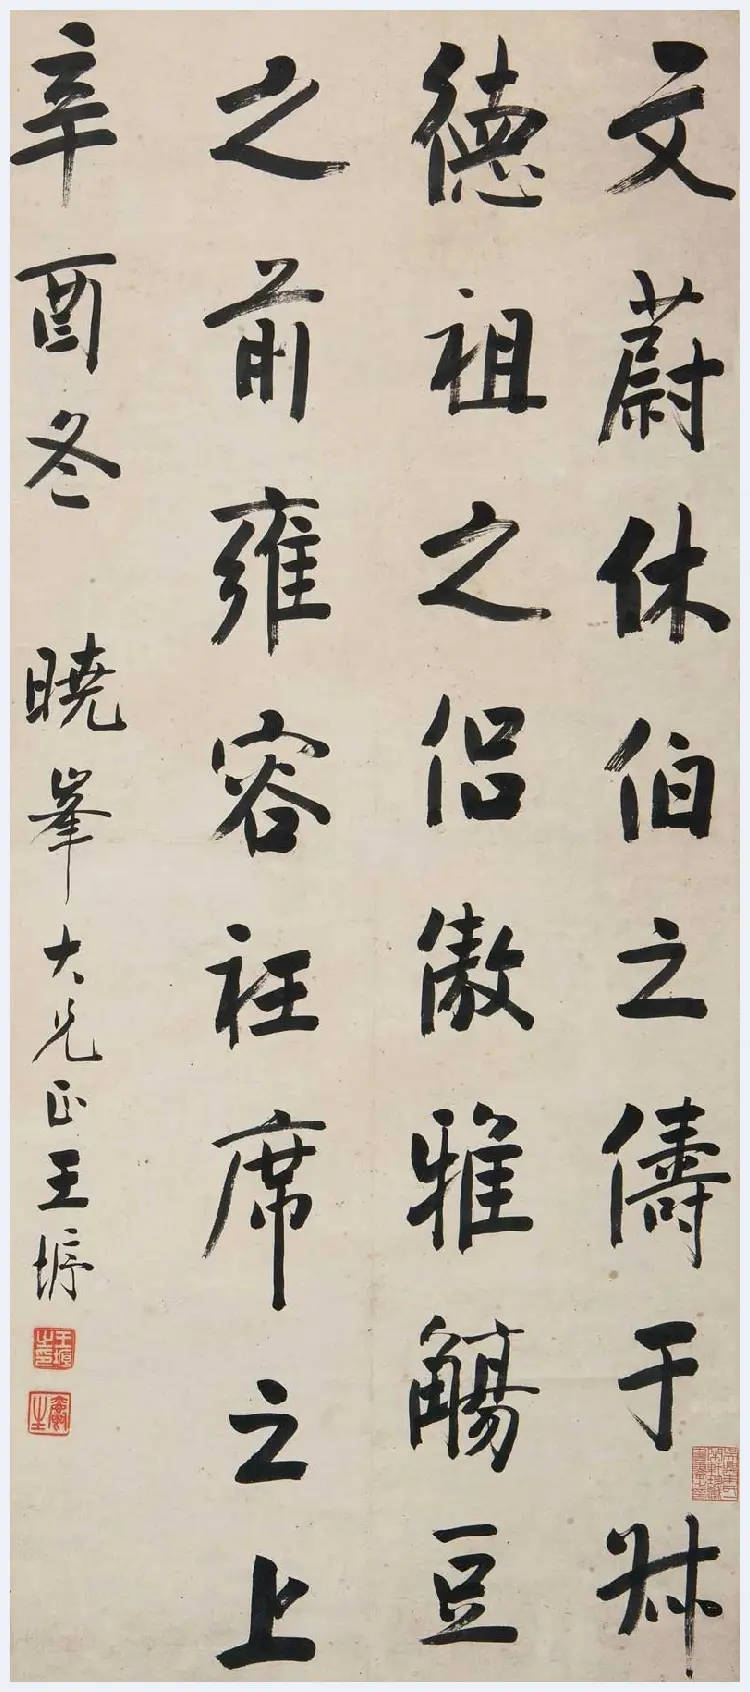 文蔚休伯之儔于叔
德祖之侶傲雅觴豆
之前雍容衽席之上
辛酉冬 曉峯大兄正王垿
王垿之印
爵生